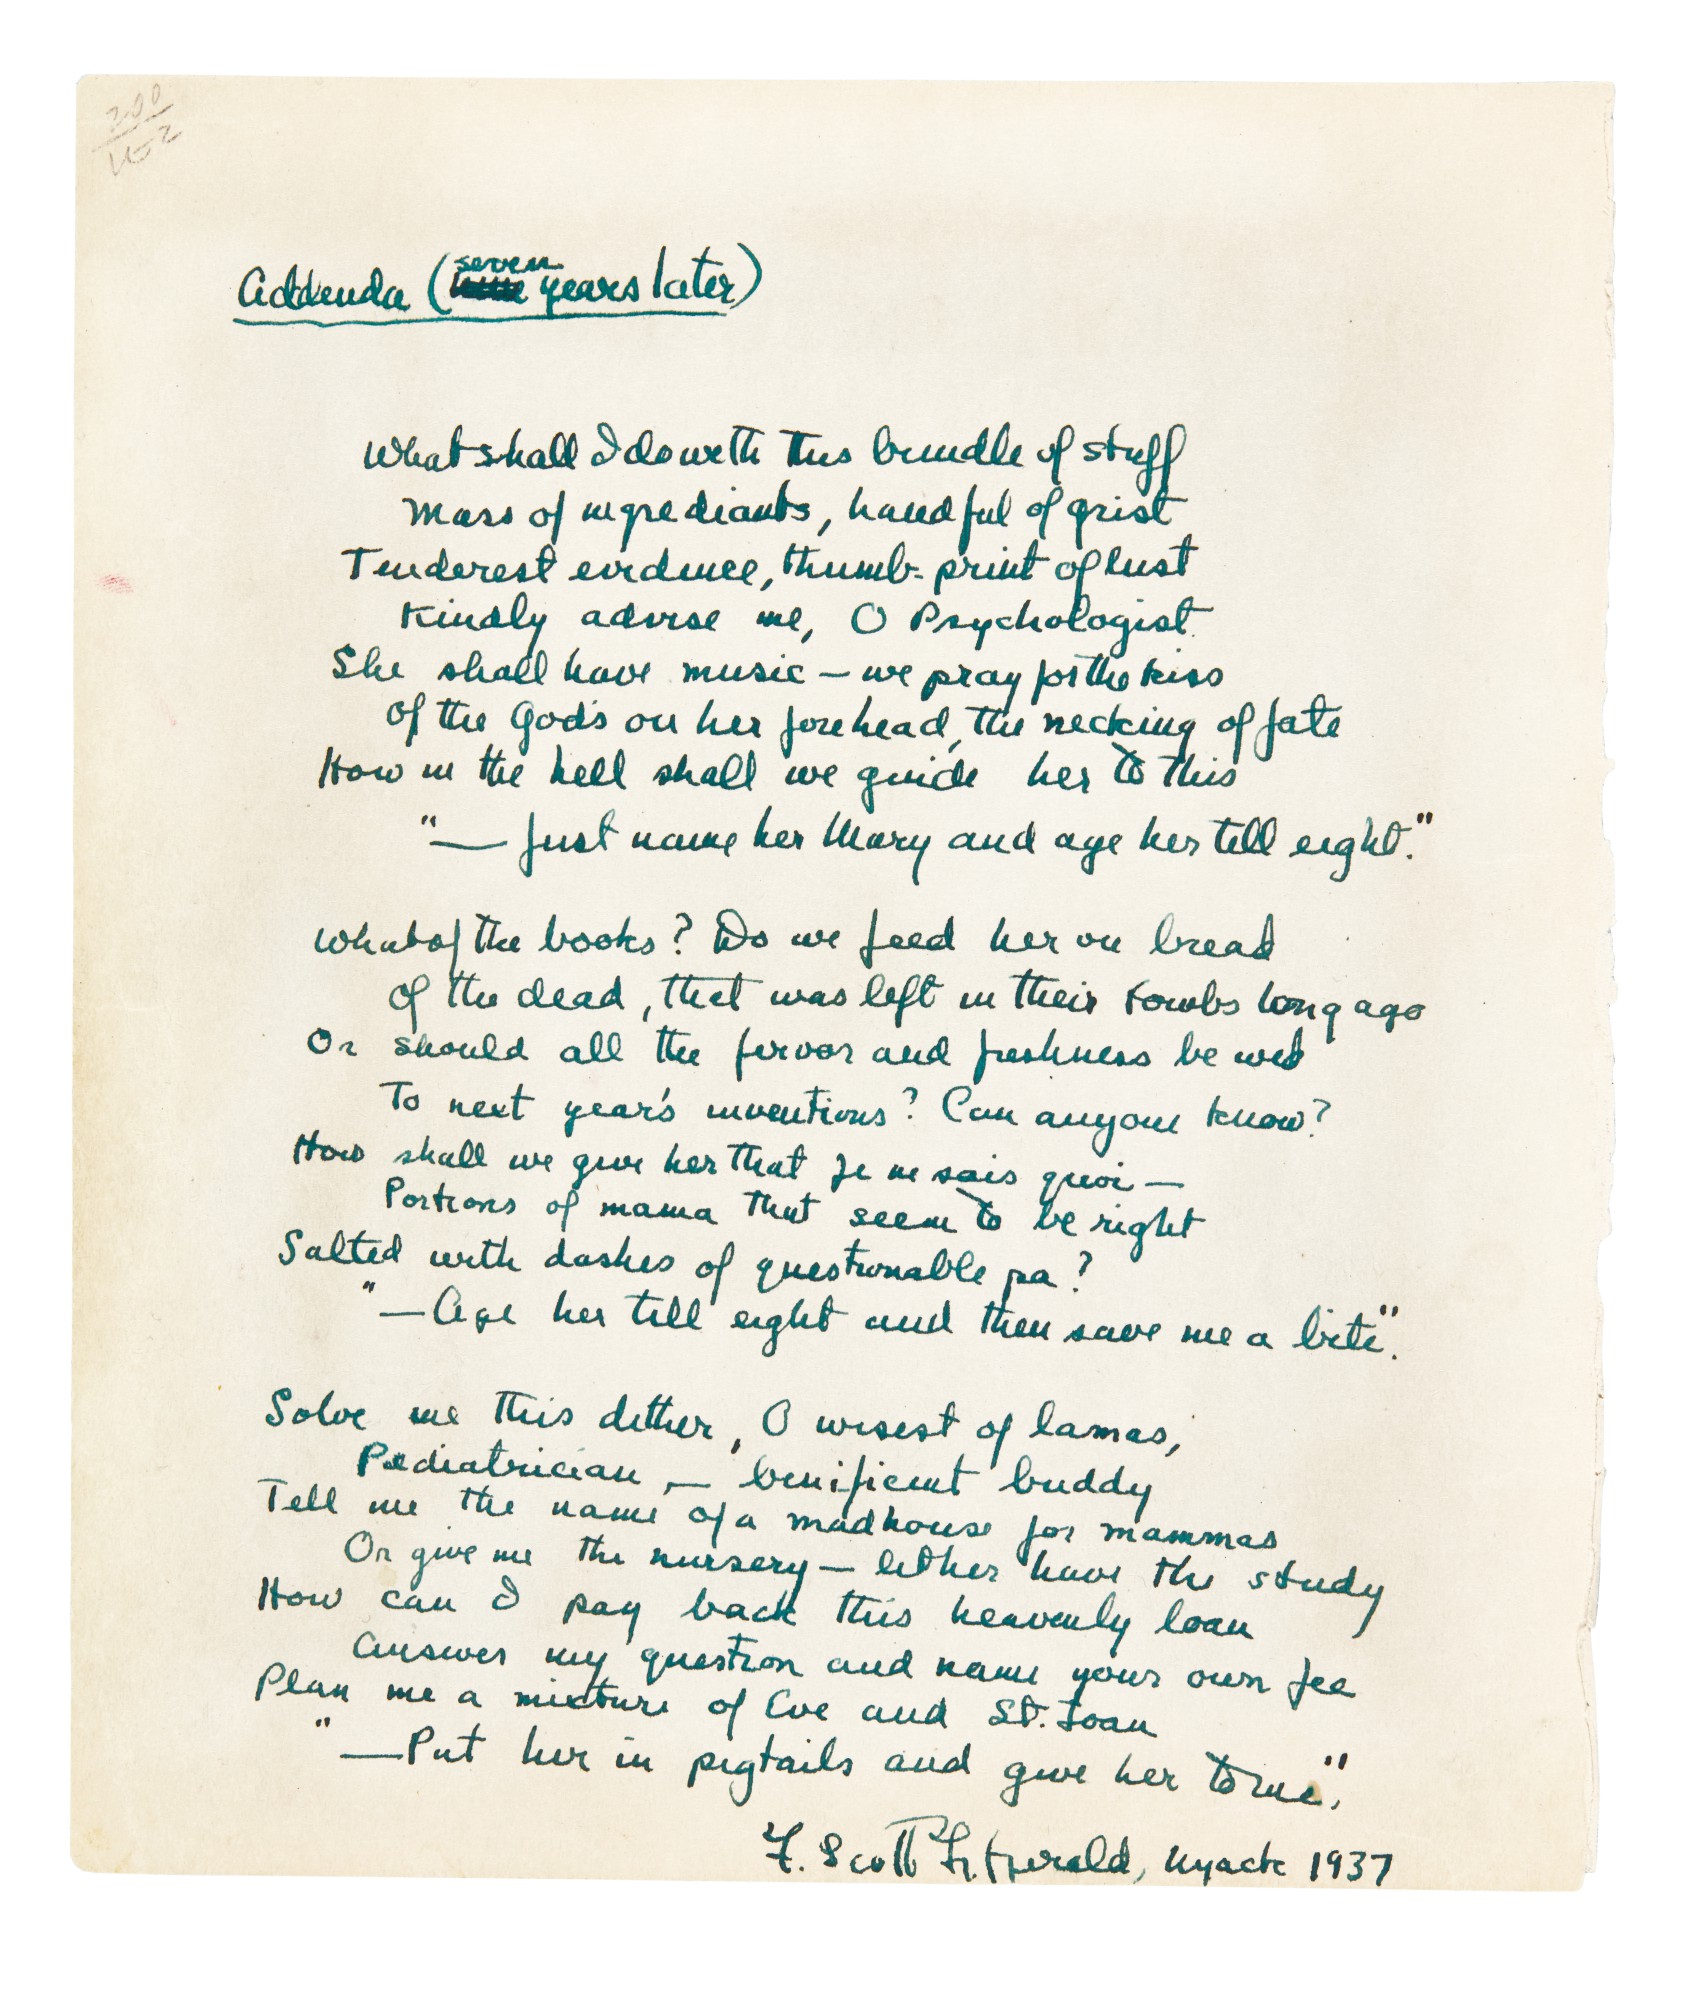 200
152
Addenda (seven years later)
What shall I do with this bundle of stuff
Mass of ingrediants, handful of grist
Tenderest evidence, thumb-print of lust
Kindly advise me, O Psychologist
She shall have music — we pray for the kiss
Of the Gods on her forehead, the necking of fate
How in the hell shall we guide her to this
"— Just name her Mary and age her till eight."
What of the books? Do we feed her on bread
Of the dead, that was left in their tombs long ago
Or should all the fervor and freshness be wed
To next year's inventions? Can anyone know?
How shall we give her that je ne sais quoi —
Portions of mama that seem to be right
Salted with dashes of questionable pa?
"— Age her till eight and then save me a bite."
Solve me this dither, O wisest of lamas,
Pediatrician — benificent buddy
Tell me the name of a madhouse for mammas
Or give me the nursery — let her have the study
How can I pay back this heavenly loan
Answer my question and name your own fee
Plan me a mixture of Eve and St. Joan
"— Put her in pigtails and give her to me".
F. Scott Fitzgerald, Nyack 1937